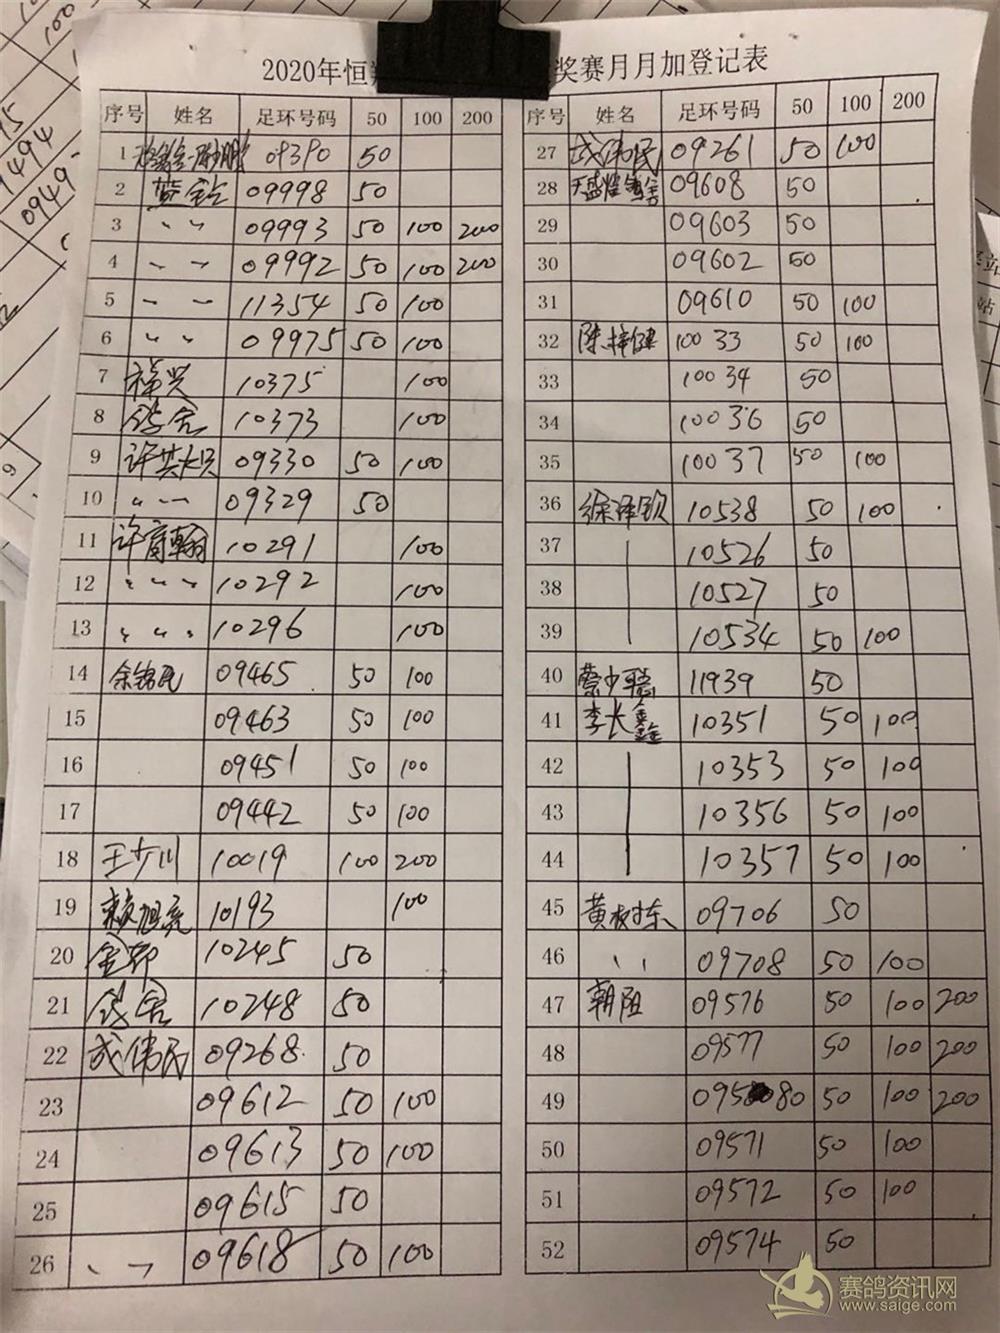 2020年恒 奖赛月月加登记表
序号 姓名 足环号码 50 100 200
1 09390 50
2 09998 50
3 〃 09993 50 100 200
4 〃 09992 50 100 200
5 〃 11354 50 100
6 〃 09975 50 100
7 福兴 10375 100
8 鸽舍 10373 100
9 09330 50 100
10 〃 09329 50
11 许育翰 10291 100
12 〃 10292 100
13 〃 10296 100
14 余锦民 09465 50 100
15 09463 50 100
16 09451 50 100
17 09442 50 100
18 王少川 10019 100 200
19 赖旭亮 10193 100
20 10245 50
21 鸽舍 10248 50
22 成伟民 09268 50
23 09612 50 100
24 09613 50 100
25 09615 50
26 〃 09618 50 100
序号 姓名 足环号码 50 100 200
27 成伟民 09261 50 100
28 09608 50
29 09603 50
30 09602 50
31 09610 50 100
32 陈梓健 10033 50 100
33 10034 50
34 10036 50
35 10037 50 100
36 徐泽钦 10538 50 100
37 10526 50
38 10527 50
39 10534 50 100
40 蔡少骢 11939 50
41 李长鑫 10351 50 100
42 10353 50 100
43 10356 50 100
44 10357 50 100
45 黄树东 09706 50
46 〃 09708 50 100
47 朝阳 09576 50 100 200
48 09577 50 100 200
49 09580 50 100 200
50 09571 50 100
51 09572 50 100
52 09574 50
赛鸽资讯网
www.saige.com